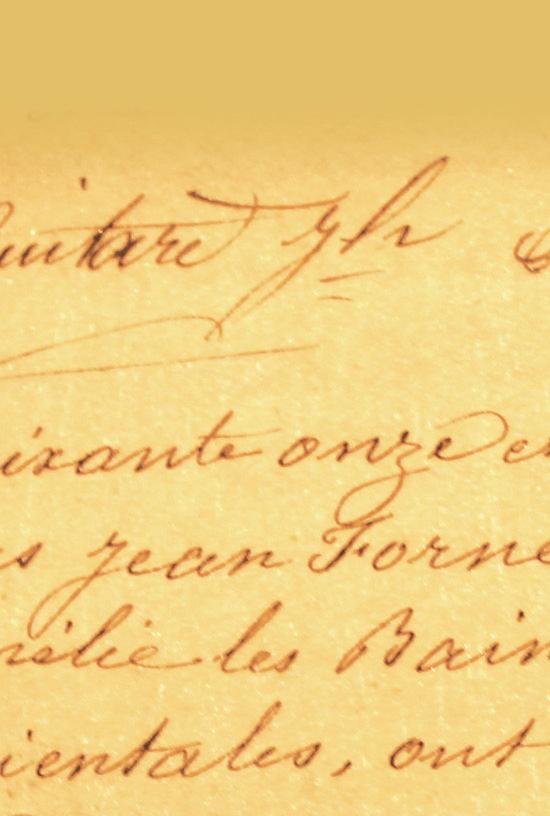 uitare Jh
ixante onze e
s Jean Forne
mélie les Bain
ientales, ont